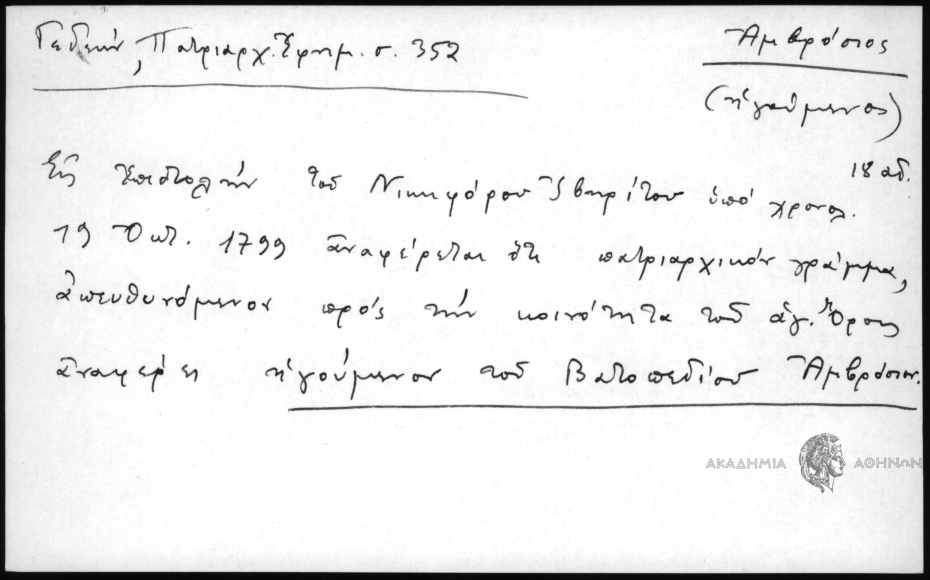 Γεδεών, Πατριαρχ. Ἐφημ. σ. 352
Ἀμβρόσιος
(ἡγούμενος)
18 αἰ.
Εἰς ἐπιστολὴν τοῦ Νικηφόρου Ἰβηρίτου ὑπὸ χρονολ.
19 Ὀκτ. 1799 ἀναφέρεται ὅτι πατριαρχικὸν γράμμα,
ἀπευθυνόμενον πρὸς τὴν κοινότητα τοῦ ἁγ. Ὄρους
ἀναφέρει ἡγούμενον τοῦ Βατοπεδίου Ἀμβρόσιον.
ΑΚΑΔΗΜΙΑ ΑΘΗΝΩΝ